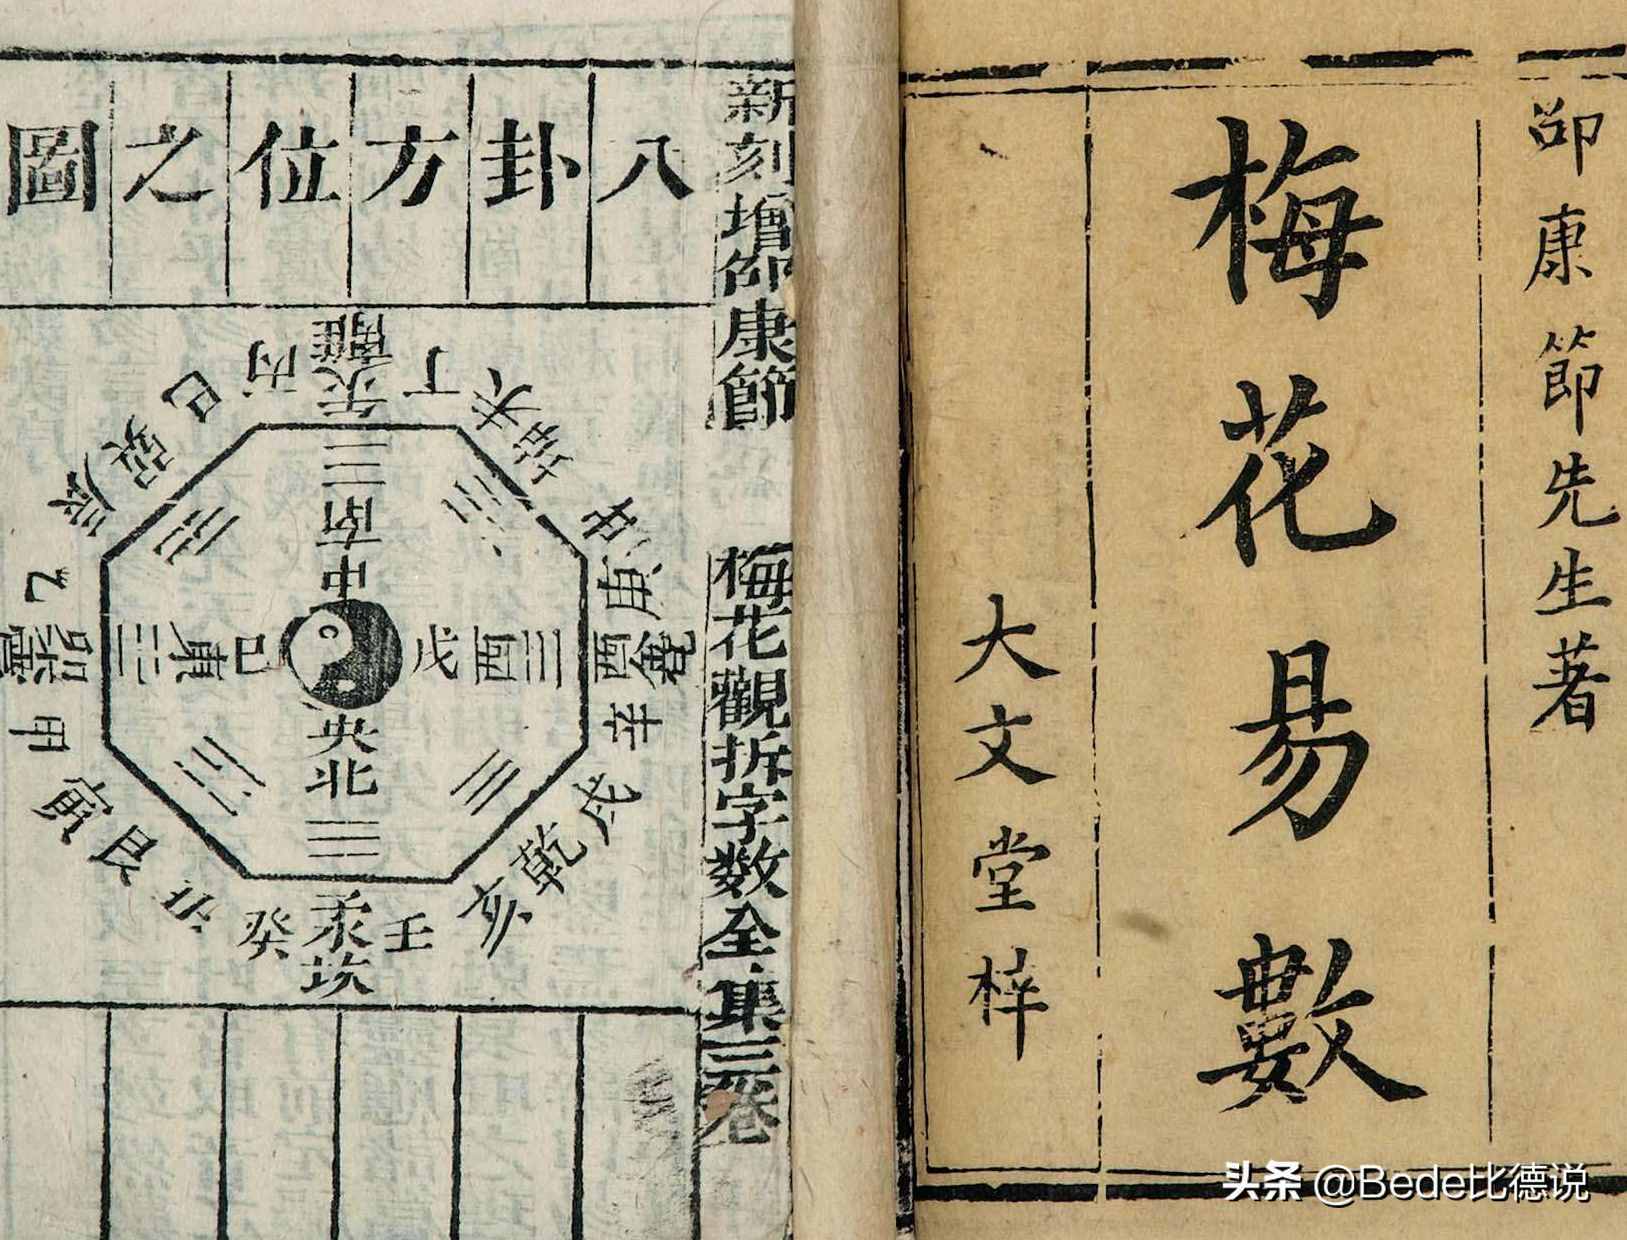 邵康節先生著
梅花易數
大文堂梓
新刻增邵康節 梅花觀折字數全集三卷
八卦方位之圖
離午
丁
未
坤
申
庚
兌酉
辛
戌
乾
亥
壬
坎
癸
丑
艮
寅
甲
震卯
乙
辰
巽
巳
丙
南
中
戊
西
央
北
己
東
头条 @Bede比德说